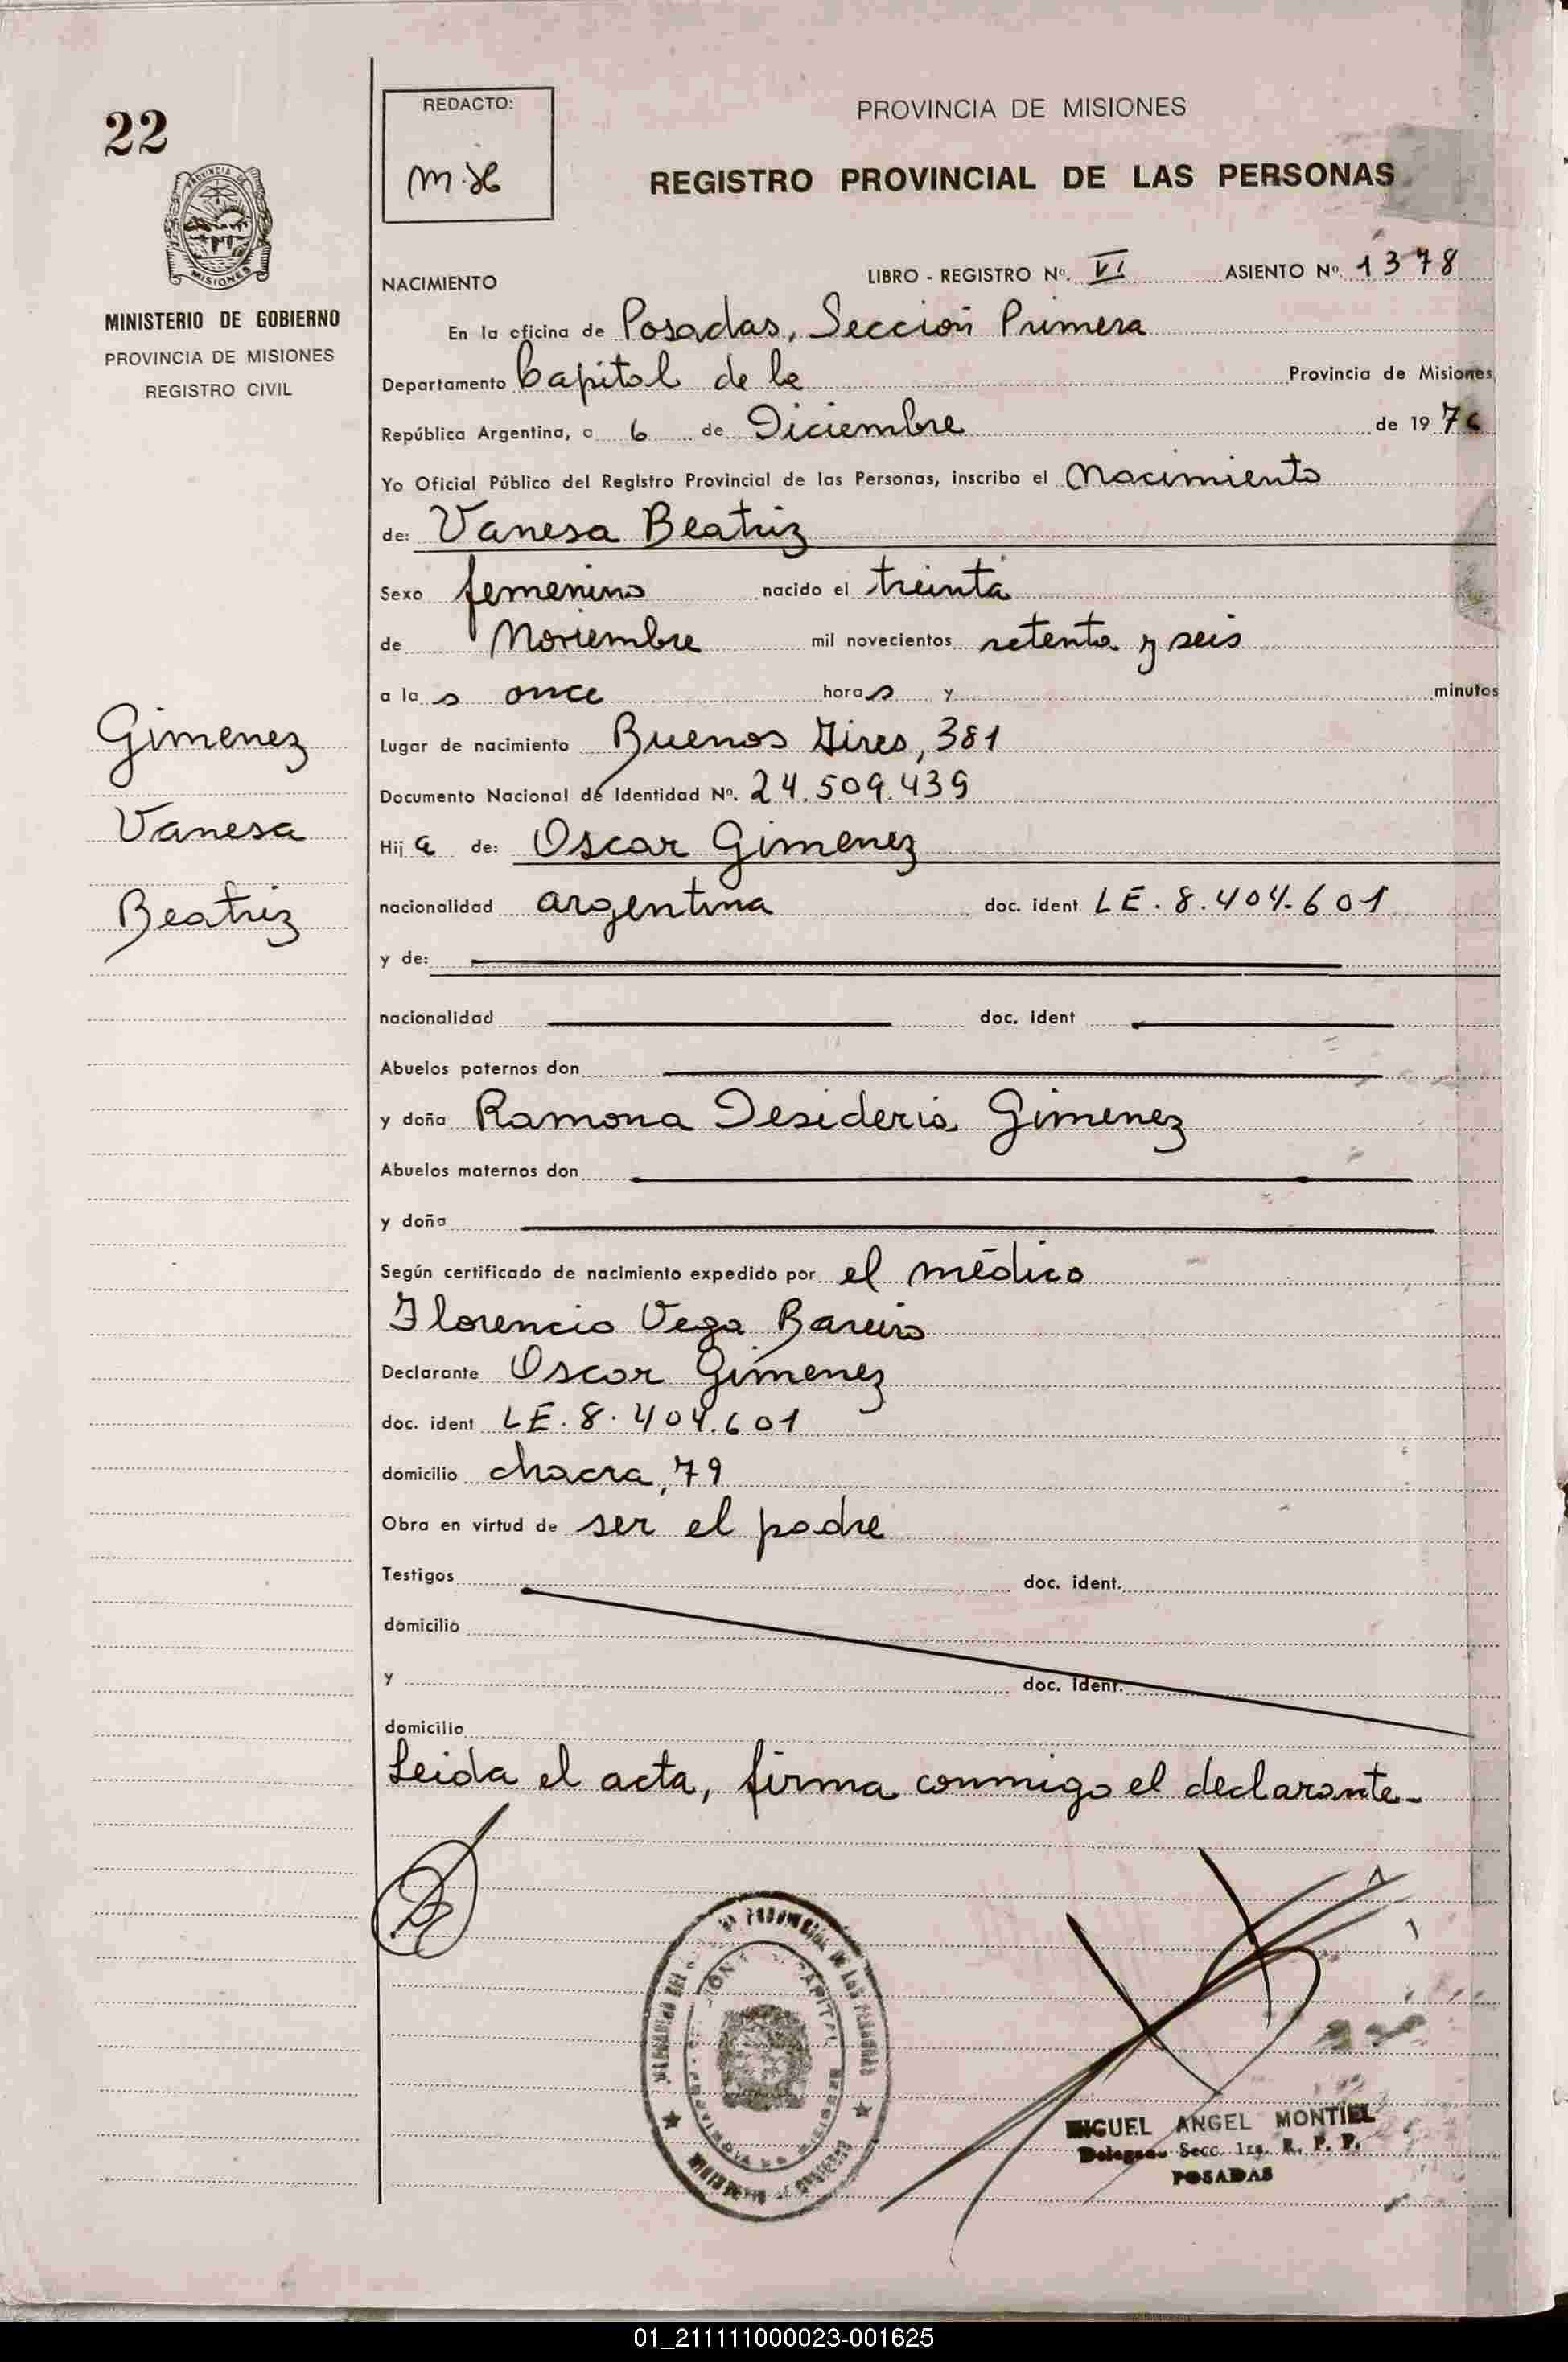 22
PROVINCIA DE
MISIONES
MINISTERIO DE GOBIERNO
PROVINCIA DE MISIONES
REGISTRO CIVIL
REDACTO:
PROVINCIA DE MISIONES
REGISTRO PROVINCIAL DE LAS PERSONAS
NACIMIENTO LIBRO - REGISTRO Nº. VI ASIENTO Nº. 1378
En la oficina de Posadas, Sección Primera
Departamento Capital de la Provincia de Misiones,
República Argentina, a 6 de Diciembre de 1976
Yo Oficial Público del Registro Provincial de las Personas, inscribo el Nacimiento
de: Vanesa Beatriz
Sexo femenino nacido el treinta
de Noviembre mil novecientos setenta y seis
a la s once hora s y minutos
Gimenez
Vanesa
Beatriz
Lugar de nacimiento Buenos Aires, 381
Documento Nacional de Identidad Nº. 24.509.439
Hij a de: Oscar Gimenez
nacionalidad argentina doc. ident LE. 8.404.601
y de:
nacionalidad doc. ident
Abuelos paternos don
y doña Ramona Desideria Gimenez
Abuelos maternos don
y doña
Según certificado de nacimiento expedido por el médico
Florencio Vega Bareiro
Declarante Oscar Gimenez
doc. ident LE. 8. 404.601
domicilio chacra, 79
Obra en virtud de ser el padre
Testigos doc. ident.
domicilio
y doc. ident.
domicilio
Leida el acta, firma conmigo el declarante-
MIGUEL ANGEL MONTIEL
Delegado Secc. 1ra. R. P. P.
POSADAS
01_211111000023-001625